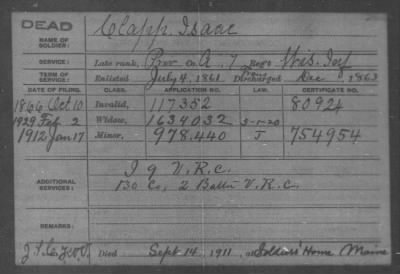 DEAD
NAME OF SOLDIER: Clapp, Isaac
SERVICE: Late rank, Priv Co. A, 7 Reg't Wis. Inf
TERM OF SERVICE: Enlisted July 4, 1861 Discharged Dec 1863
DATE OF FILING. CLASS. APPLICATION NO. LAW. CERTIFICATE NO.
1866 Oct 10 Invalid, 117.352 80924
1929 Feb 2 Widow, 1634032 5-1-20
1912 Jan 17 Minor, 978.440 J 754954
ADDITIONAL SERVICES: I 9 V.R.C.
130 Co, 2 Batt'n V.R.C.
REMARKS:
Died Sept 14, 1911, at Soldiers' Home Maine